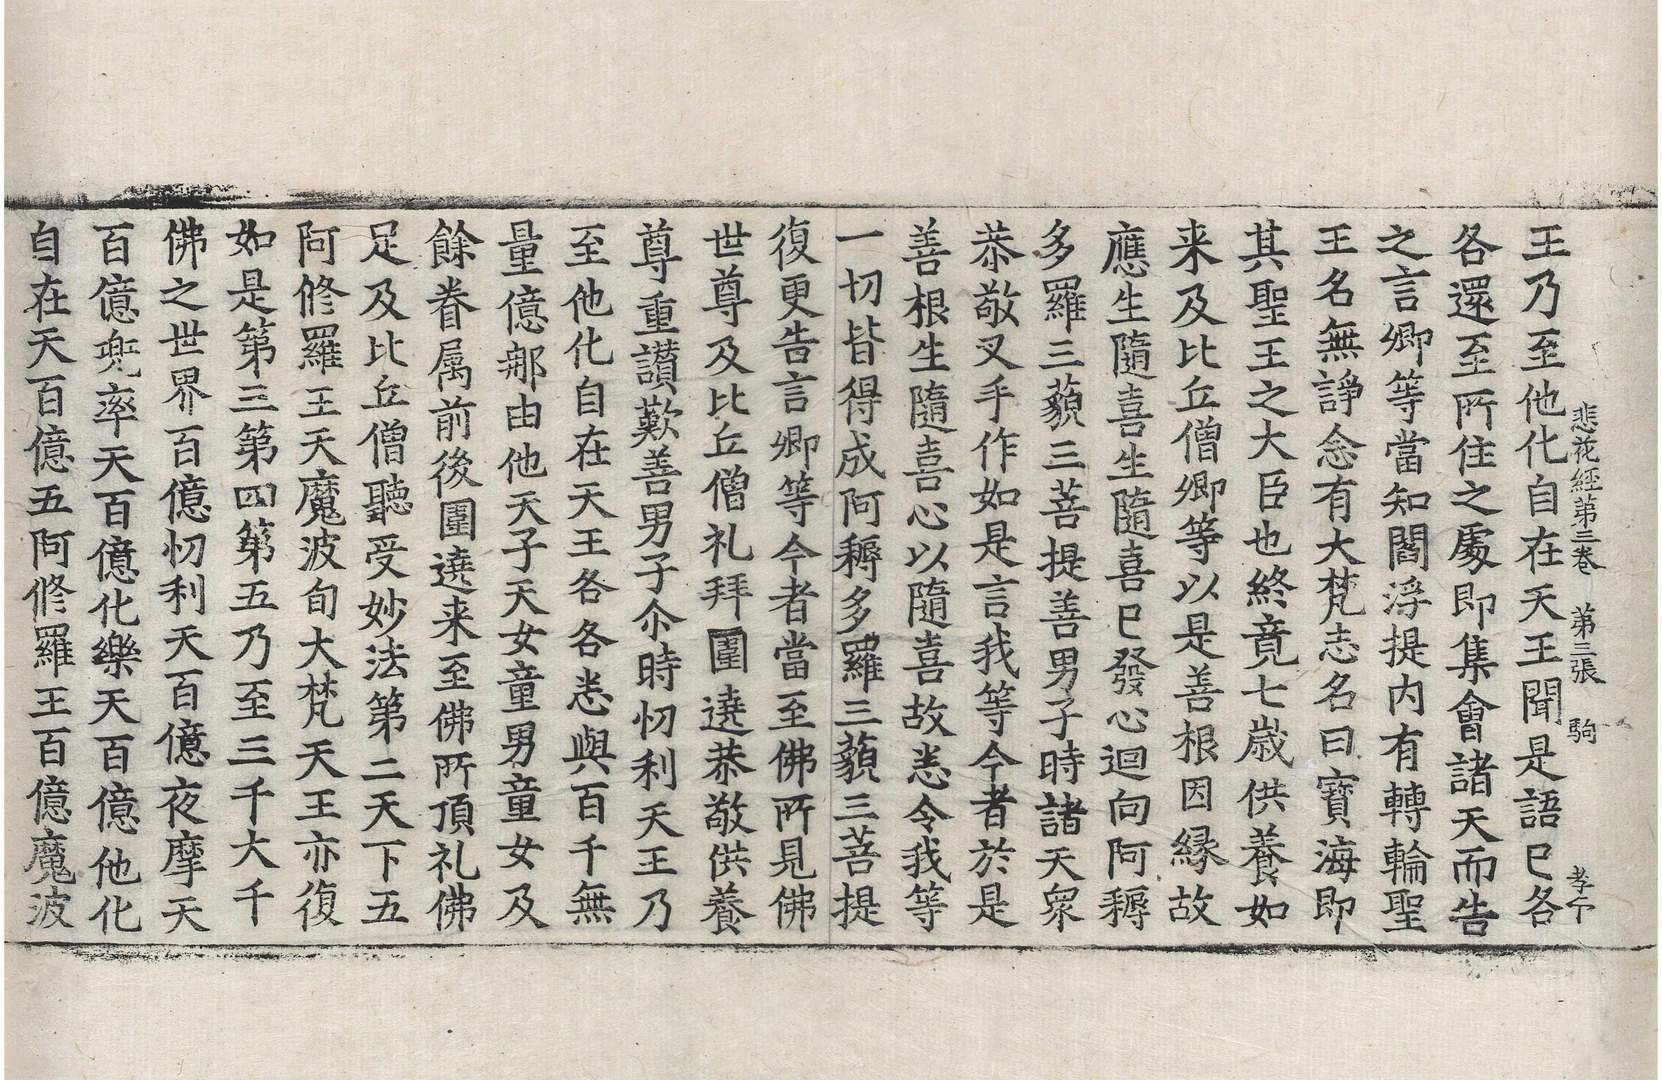 悲花經第三卷 第三張 駒 孝下
王乃至他化自在天王聞是語已各
各還至所住之處即集會諸天而告
之言卿等當知閻浮提内有轉輪聖
王名無諍念有大梵志名曰寶海即
其聖王之大臣也終竟七歲供養如
来及比丘僧卿等以是善根因縁故
應生隨喜生隨喜已發心迴向阿耨
多羅三藐三菩提善男子時諸天衆
恭敬叉手作如是言我等今者於是
善根生隨喜心以隨喜故悉令我等
一切皆得成阿耨多羅三藐三菩提
復更告言卿等今者當至佛所見佛
世尊及比丘僧礼拜圍遶恭敬供養
尊重讃歎善男子尒時忉利天王乃
至他化自在天王各各悉與百千無
量億那由他天子天女童男童女及
餘眷属前後圍遶来至佛所頂礼佛
足及比丘僧聽受妙法第二天下五
阿修羅王天魔波旬大梵天王亦復
如是第三第四第五乃至三千大千
佛之世界百億忉利天百億夜摩天
百億兜率天百億化樂天百億他化
自在天百億五阿修羅王百億魔波